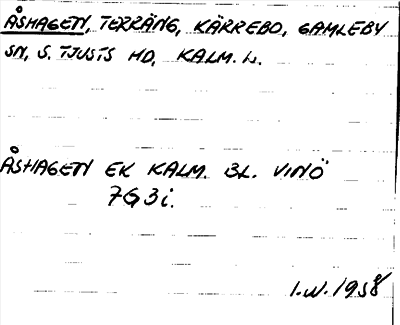 ÅSHAGEN, TERRÄNG, KÄRREBO, GAMLEBY
SN, S. TJUSTS HD, KALM. L.
ÅSHAGEN EK KALM. BL. VINÖ
7G3i.
I.W. 1958